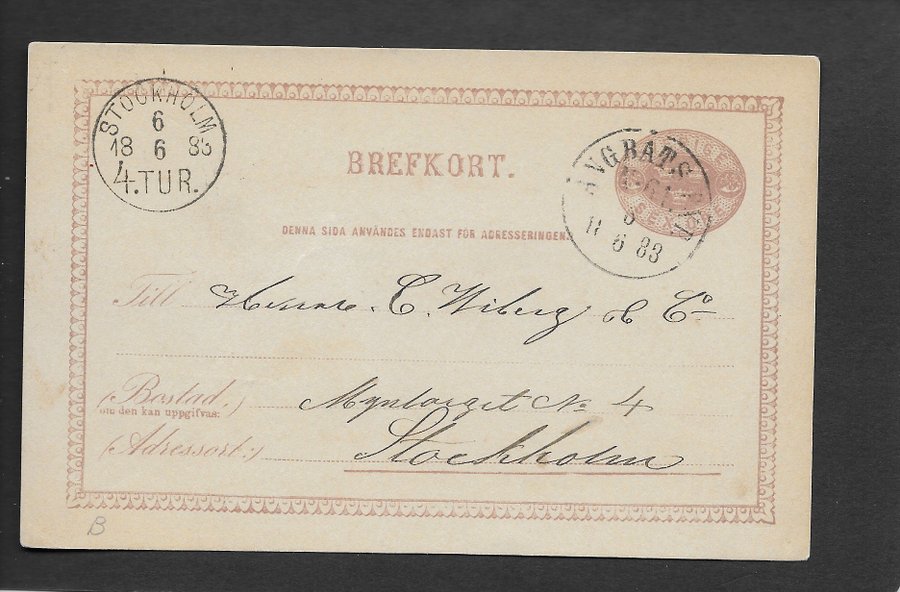 STOCKHOLM
6
18 6 83
4.TUR.
BREFKORT.
ÅNGBÅTS
6
11 6 83
DENNA SIDA ANVÄNDES ENDAST FÖR ADRESSERINGEN.
Till Herrar C. Wiberg & Co
(Bostad.)
om den kan uppgifvas:
Myntorget No 4
(Adressort:) Stockholm
B